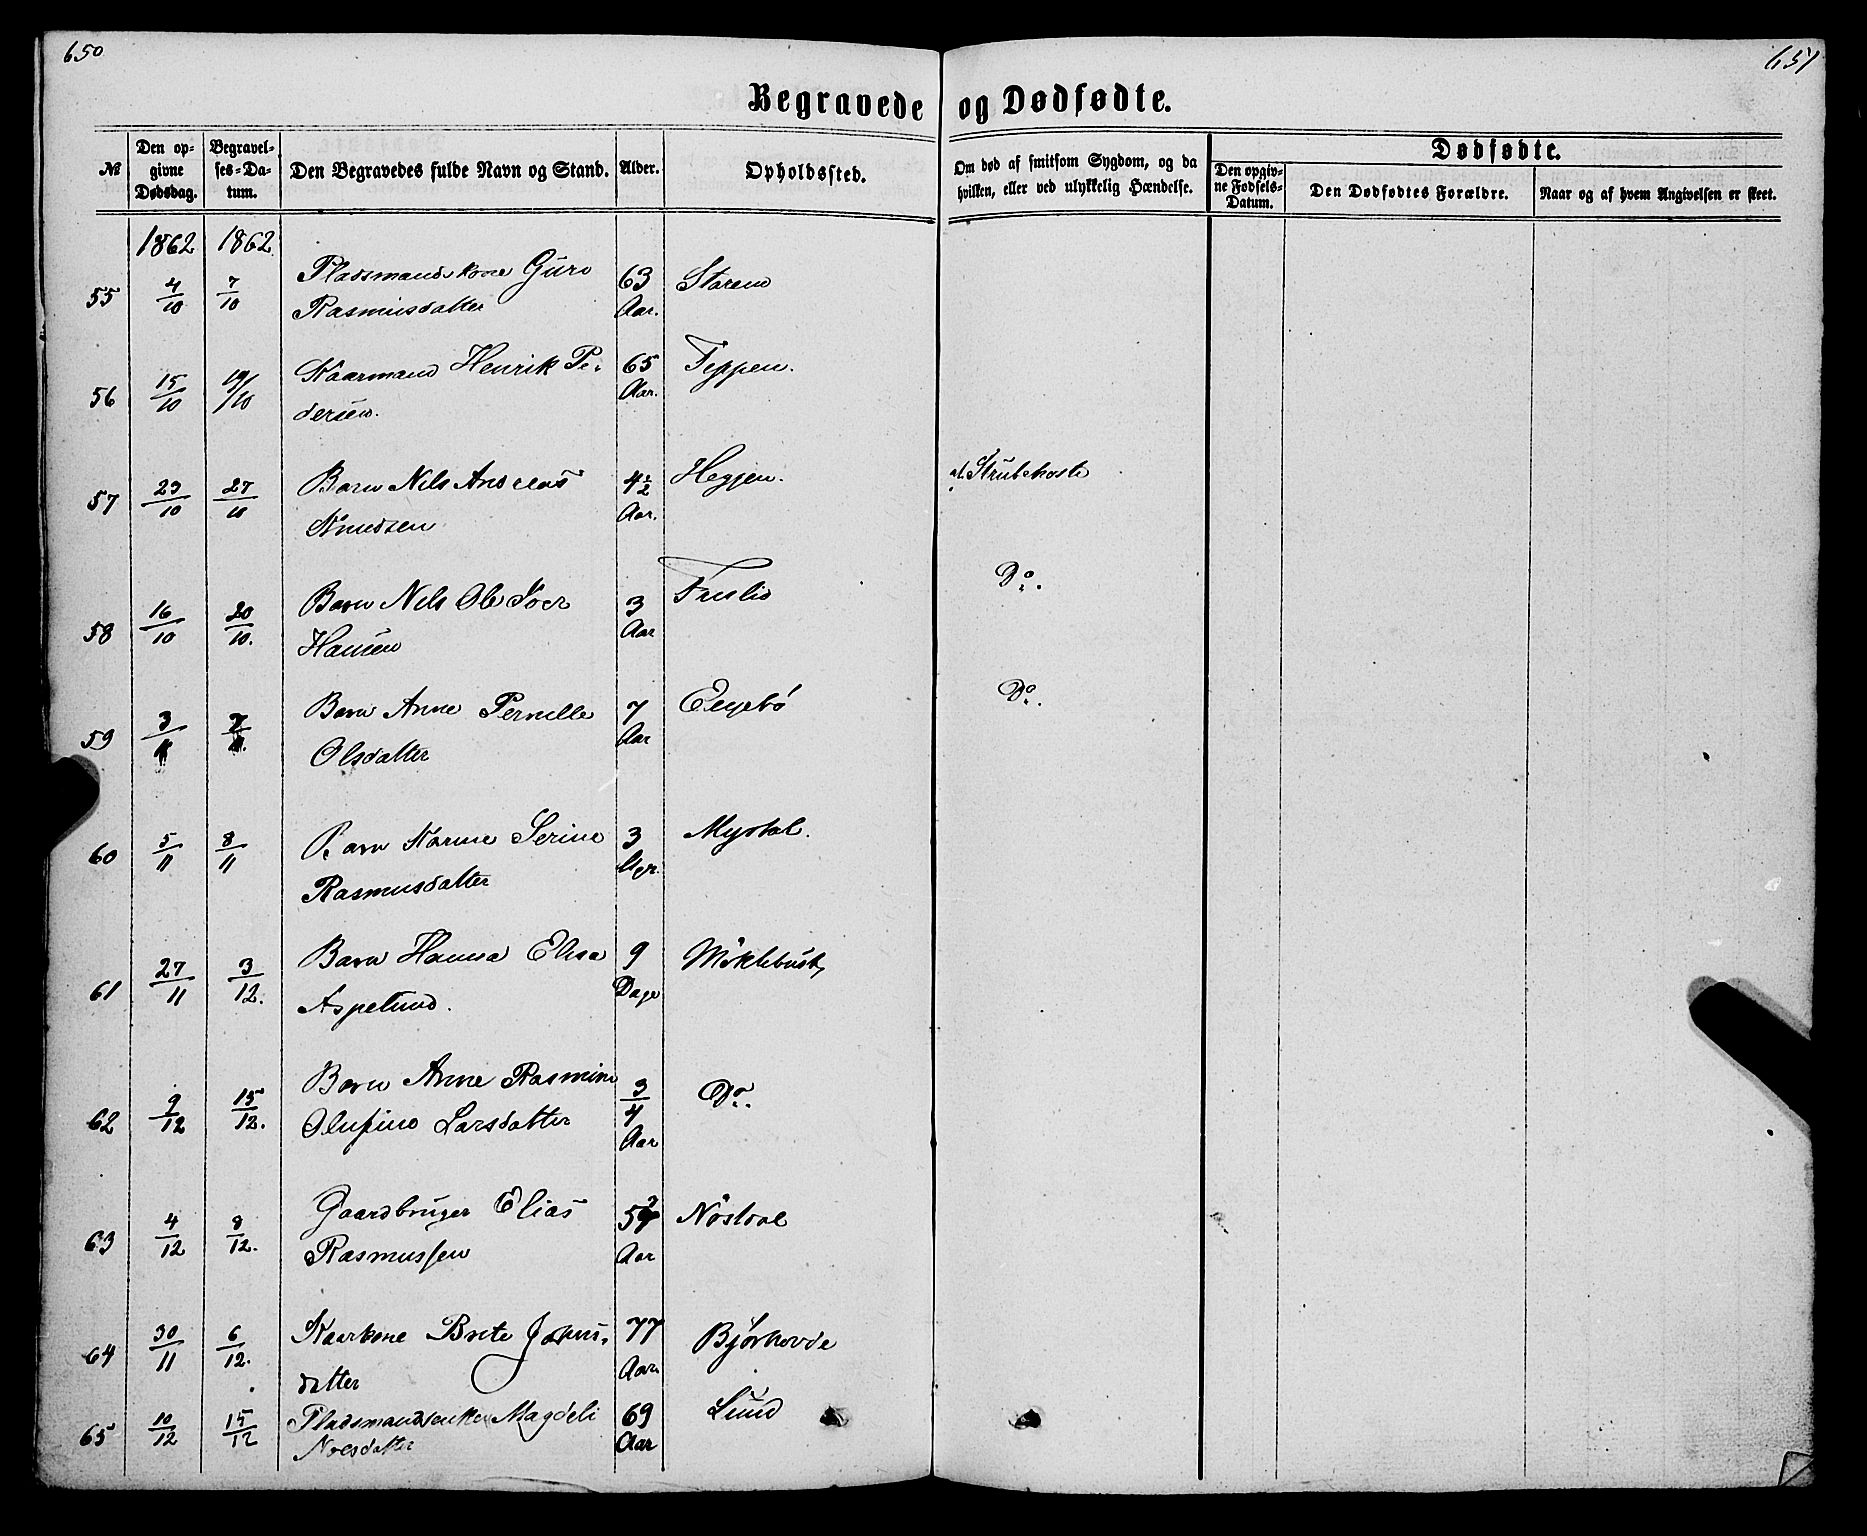 650
651
Begravede og Dødfødte.
№
Den op-
givne
Dødsdag.
Begravel-
ses-Da-
tum.
Den Begravedes fulde Navn og Stand.
Alder.
Opholdssted.
Om død af smitsom Sygdom, og da
hvilken, eller ved ulykkelig Hændelse.
Dødfødte.
Den opgiv-
ne Fødsels-
Datum.
Den Dødfødtes Forældre.
Naar og af hvem Angivelsen er skeet.
1862 1862
55 4/10 7/10 Pladsmandskone Guro 63 Staren
Rasmusdatter Aar.
56 15/10 19/10 Kaarmand Henrik Pe- 65 Teppen.
dersen. Aar.
57 23/10 27/10 Barn Nils Andreas 4½ Hegjen. af Strubehoste
Knudsen Aar.
58 16/10 20/10. Barn Nils Ole 3 Do.
Hansen Aar
59 3/11 7/11. Barn Anne Pernille 7 Do.
Olsdatter Aar
60 5/11 8/11 Barn Karine Serine 3 Myrtal.
Rasmusdatter
61 27/11 3/12. Barn Hanna Elisa 9 Miklebust,
Aspelund. Dage
62 9/12 15/12. Barn Anne Rasmine 3/4 Do.
Olufine Larsdatter Aar
63 4/12 8/12. Gaardbruger Elias Nøstdal
Rasmussen Aar
64 30/11 6/12. Kaarkone Brite Johns- 77 Bjørhovde
datter Aar.
65 10/12 15/12 Pladsmandsenke Magdeli 69 Lund
Nilsdatter Aar